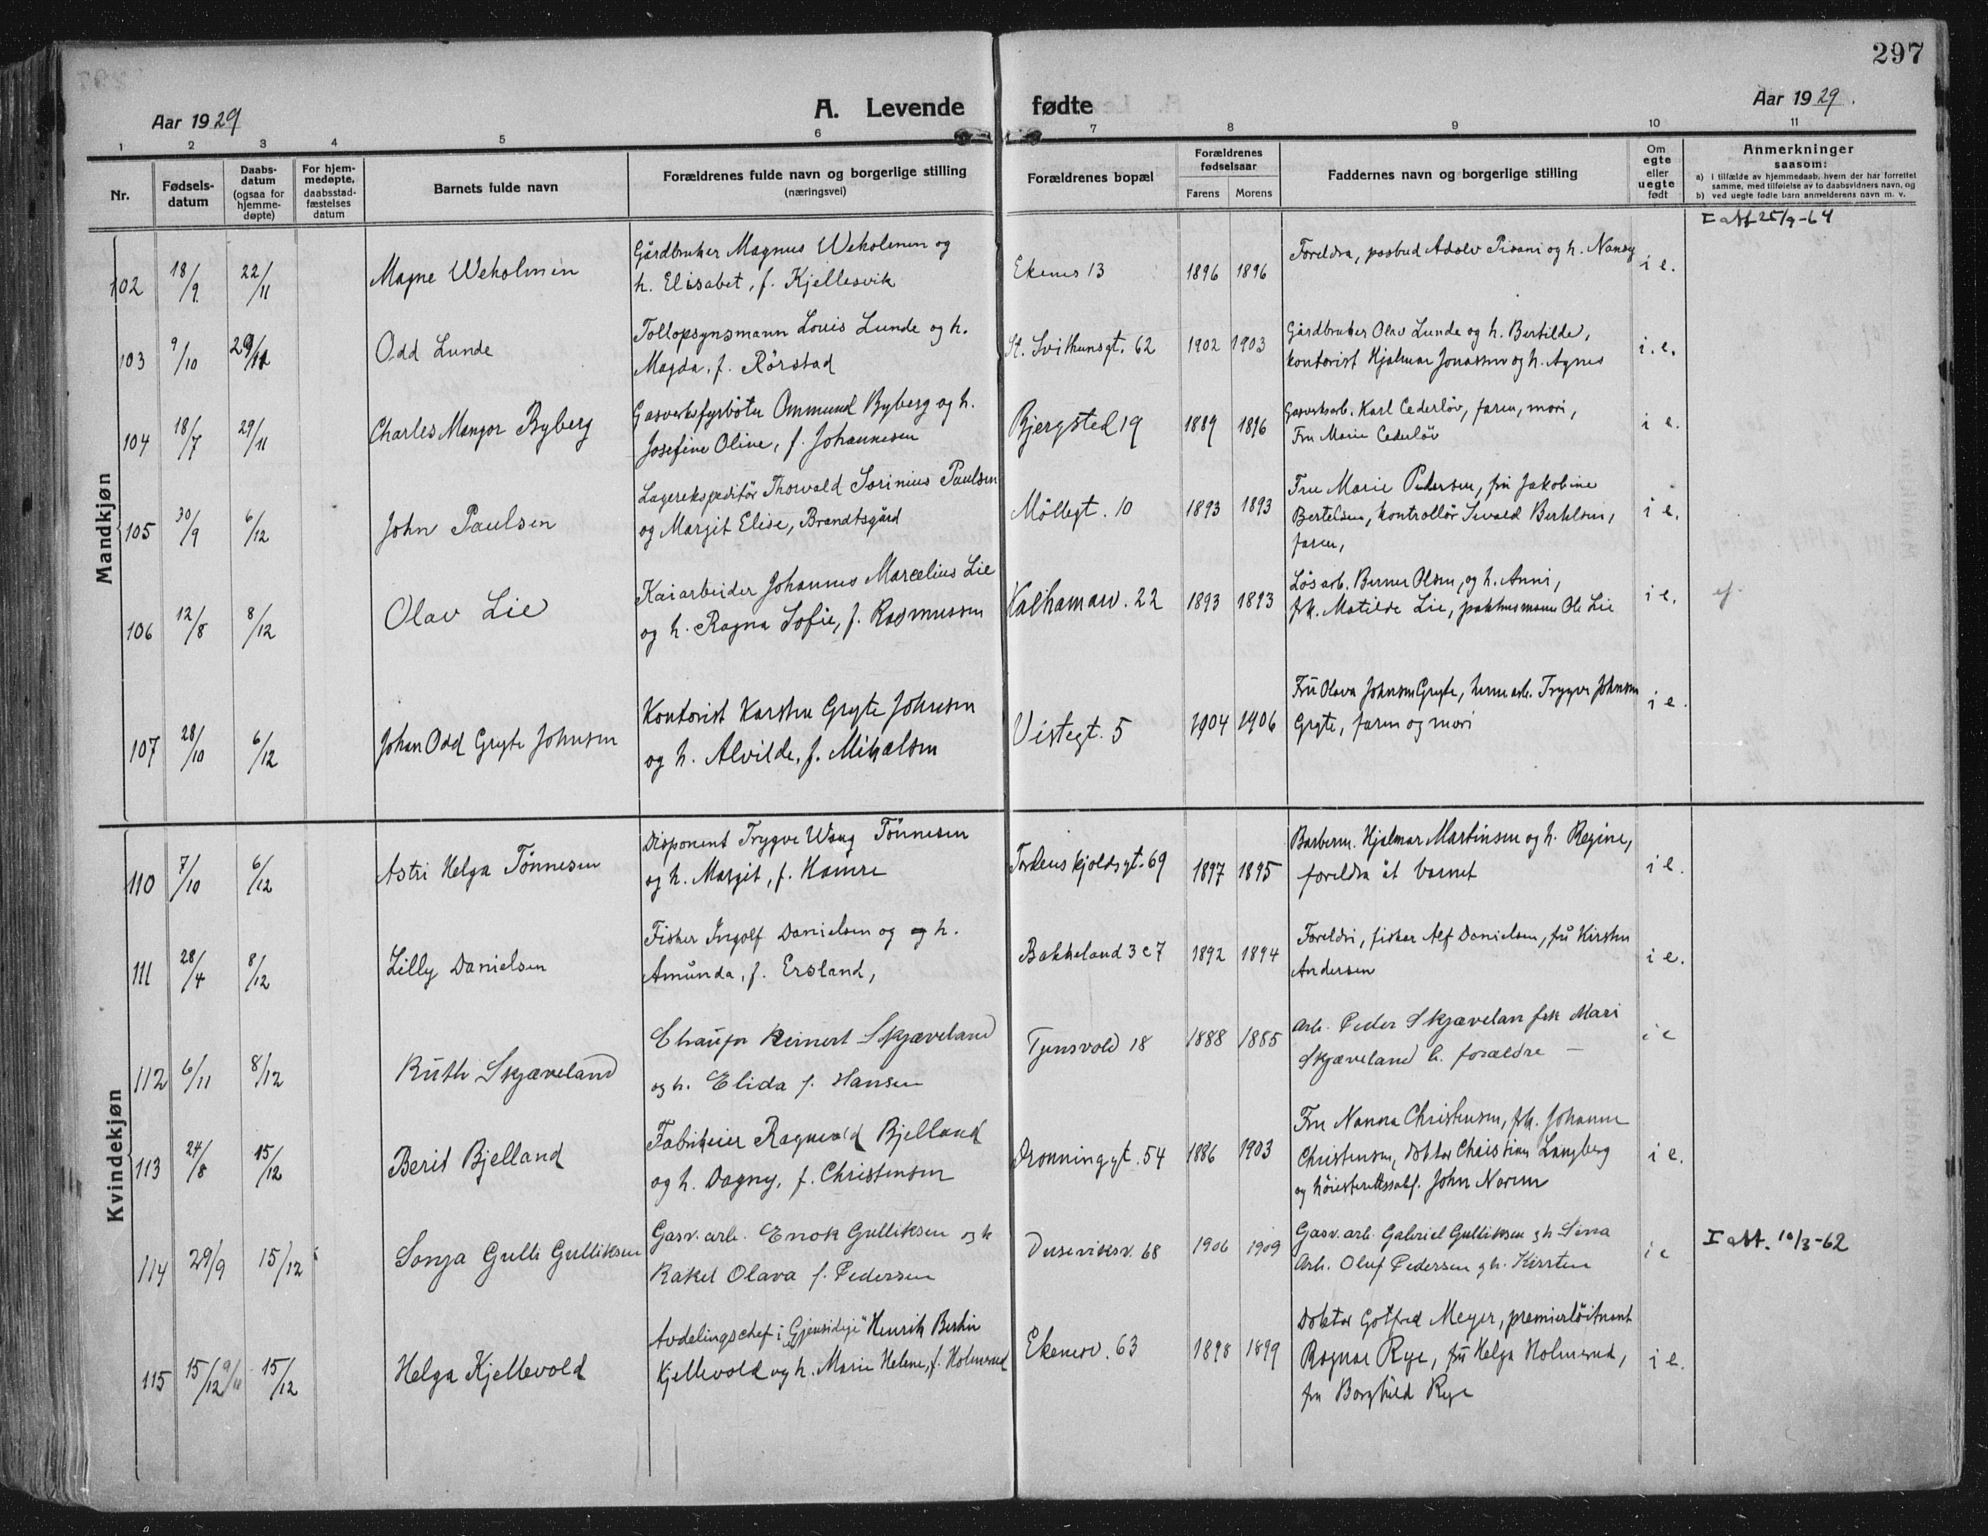 297
Aar 1929
A. Levende fødte
Aar 1929.
1 2 3 4 5 6 7 8 9 10 11
Nr.
Fødsels-
datum
Daabs-
datum
(ogsaa for
hjemme-
døpte)
For hjem-
medøpte,
daabsstad-
fæstelses
datum
Barnets fulde navn
Forældrenes fulde navn og borgerlige stilling
(næringsvei)
Forældrenes bopæl
Forældrenes
fødselsaar
Farens Morens
Faddernes navn og borgerlige stilling
Om
egte
eller
uegte
født
Anmerkninger
saasom:
a) i tilfælde av hjemmedaab, hvem der har forrettet
samme, med tilføielse av to daabsvidners navn, og
b) ved uegte fødte barn anmelderens navn m. v.
Mandkjøn
I att 25/9-64
102 18/9 22/11 Magne Weholmen
Gårdbruker Magnus Weholmen og
h. Elisabet, f. Kjellesvik
Ekenes 13 1896 1896
Foreldra, postbud Adolv Pisani og h. Nancy
i e.
103 9/10 29/11 Odd Lunde
Tollopsynsmann Louis Lunde og h.
Magda, f. Rörstad
St. Svithunsgt. 62 1902 1903
Gårdbruker Olav Lunde og h. Bertilde,
kontorist Hjalmar Jonassen og h. Agnes
i. e.
104 18/7 29/11 Charles Mangor Byberg
Gasverksfyrböter Ommund Byberg og h.
Josefine Olive, f. Johannesen
Bjergsted 19 1889 1896
Gasverksarb. Karl Cederlöv, faren, mori,
Fru Marie Cederlöv
i e.
105 30/9 6/12 John Paulsen
Lagerekspeditör Thorvald Sorinius Paulsen
og Margit Elise, Brandtsgård
Möllegt. 10 1893 1893
Fru Marie Pedersen, fru Jakobine
Bertelsen, kontrollör Sevald Bertelsen,
faren,
i e.
106 12/8 8/12 Olav Lie
Kaiarbeider Johannes Marcelius Lie
og h. Ragna Sofie, f. Rasmussen
Kalhamarv. 22 1893 1893
Lösarb. Berner Olsen, og h. Anni,
frk. Matilde Lie, pakhusmann Ole Lie
i e.
107 28/10 6/12 Johan Odd Gryte Johnsen
Kontorist Karsten Gryte Johnsen
og h. Alvilde, f. Mikalsen
Vistegt. 5 1904 1906
Fru Olava Johnsen Gryte, hermarb. Trygve Johnsen
Gryte, faren og mori
i e.
Kvindekjøn
110 7/10 6/12 Astri Helga Tönnesen
Disponent Trygve Wang Tönnesen
og h. Margit, f. Hamre
Tordenskjoldsgt. 69 1897 1895
Barberm. Hjalmar Martinsen og h. Regine,
foreldra åt barnet
i e.
111 28/4 8/12 Lilly Danielsen
Fisker Ingolf Danielsen og og h.
Amunda, f. Ersland,
Bakkeland 3 c 7 1892 1894
Foreldri, fiskar Alf Danielsen, fru Kirsten
Andersen
i e.
112 6/11 8/12 Ruth Skjæveland
Chaufør Reinert Skjæveland
og h. Elida f. Hansen
Tjensvold 18 1888 1885
Arb. Peder Skjævelan frk Mari
Skjæveland & forældre –
i e
113 24/8 15/12 Berit Bjelland
Fabrikeier Ragnvald Bjelland
og h. Dagny, f. Christensen
Dronninggt. 54 1886 1903
Fru Nanna Christensen, frk. Johanne
Christensen, doktor Christian Langberg
og höiesterettssakf. John Noren
i e.
114 29/9 15/12 Sonja Gulli Gulliksen
Gasv. arb. Enok Gulliksen og h
Rakel Olava f. Pedersen
Dusevikv. 68 1906 1909
Gasv. arb. Gabriel Gulliksen og h Sina
Arb. Oluf Pedersen og h. Kirsten
i e
I att. 10/3-62
115 15/12 9/11 15/12 Helga Kjellevold
Avdelingschef i "Gjensidige" Henrik Bertin
Kjellevold og h. Marie Helene, f. Holmrud
Ekenesv. 63 1898 1899
Doktor Gotfred Meyer, premierlöitnant
Ragnar Rye, fru Helga Holmrud,
fru Borghild Rye
i e.